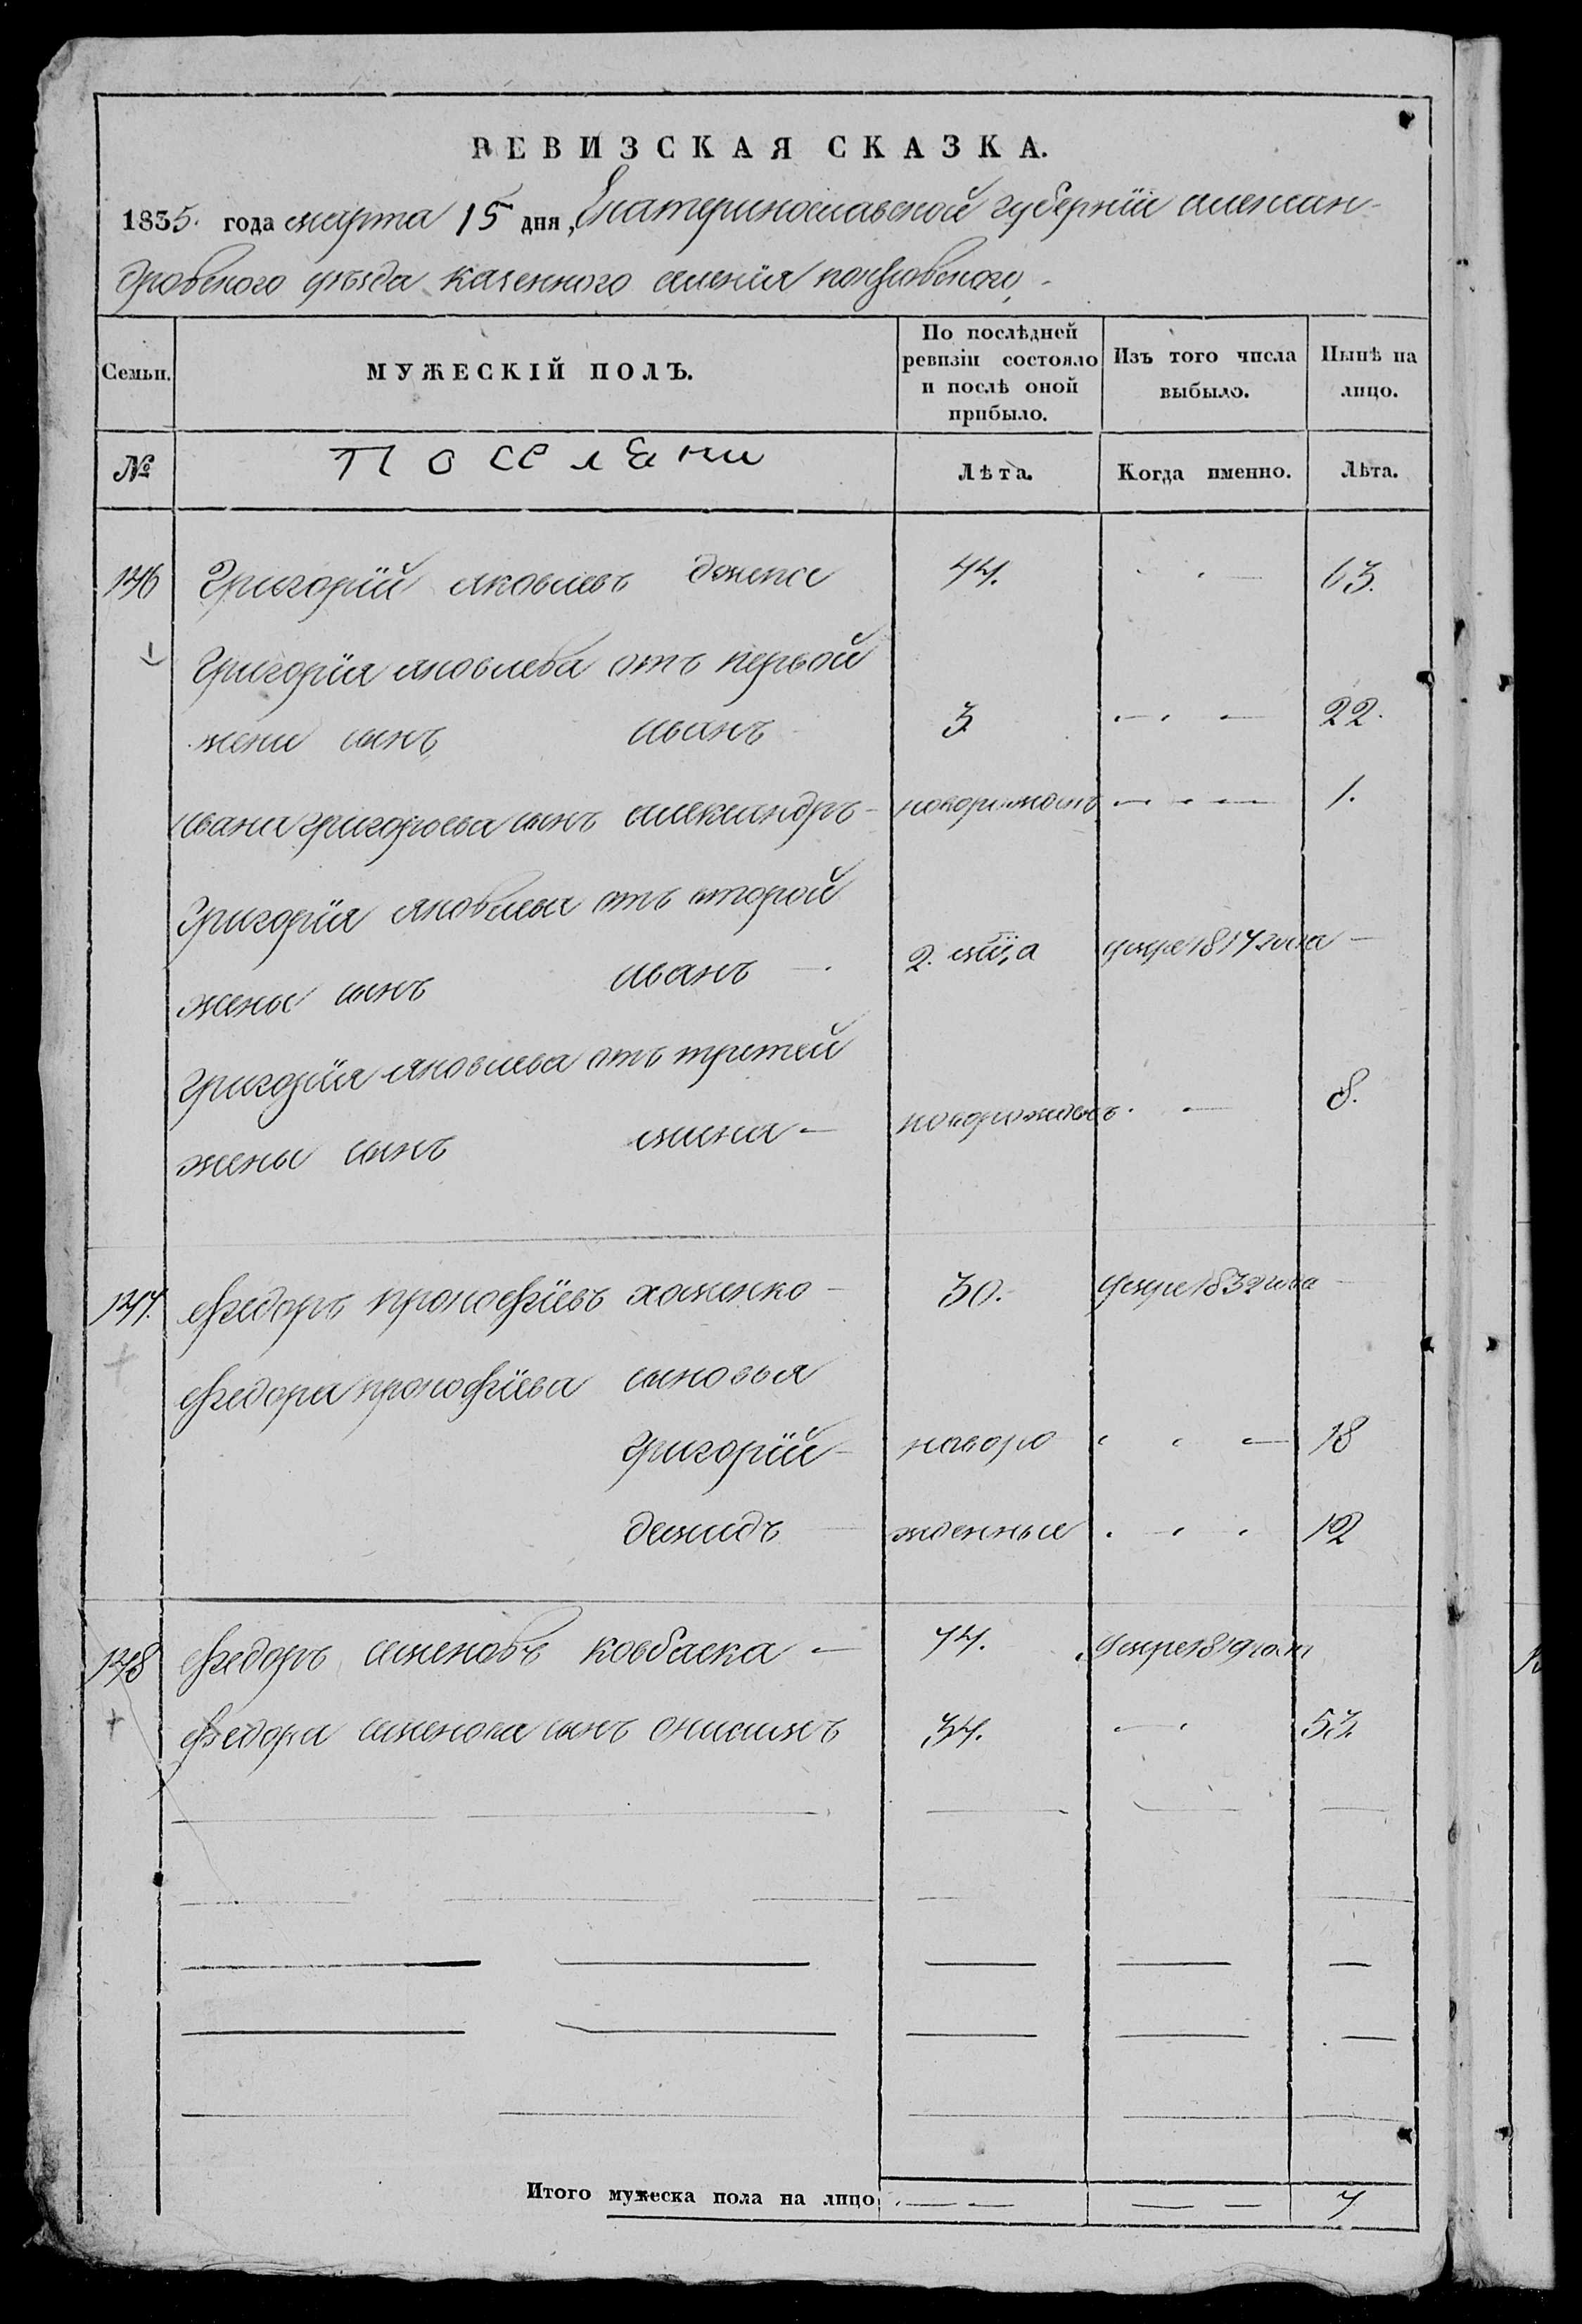 РЕВИЗСКАЯ СКАЗКА.
1835. года марта 15 дня, Екатеринославской губернїи алексан-
дровского уѣзда казенного селенїя покровского,
Семьи.
МУЖЕСКІЙ ПОЛЪ.
По послѣдней ревизіи состояло и послѣ оной прибыло.
Изъ того числа выбыло.
Нынѣ на лицо.
№
Поселяни
Лѣта.
Когда именно.
Лѣта.
146 Григорїй яковлевъ 44. 63.
Григорїя яковлева отъ первой
жени сынъ иванъ 3 22.
ивана григорьева сынъ александръ новорожденъ 1.
Григорїя яковлева отъ второй
жены сынъ иванъ 2. умре 1817 года
Григорїя яковлева отъ третей
жены сынъ новорожденъ 8.
147. Федоръ прокофїевъ хоменко 30. умре 1832 года
Федора прокофїева сыновья
Григорїй новоро 18
демидъ жденные 12
148 Федоръ семеновъ ковбаска 74. умре 1819 года
Федора семенова сынъ онисимъ 34. 53
Итого мужеска пола на лицо 7